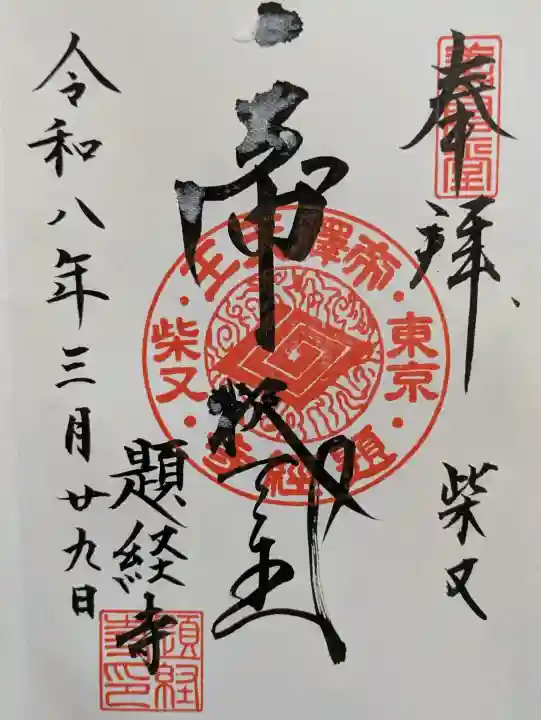 奉拝
柴又
帝釈天王
題経寺
令和八年三月廿九日
帝釋天王
東京
柴又
題經寺
題経寺印